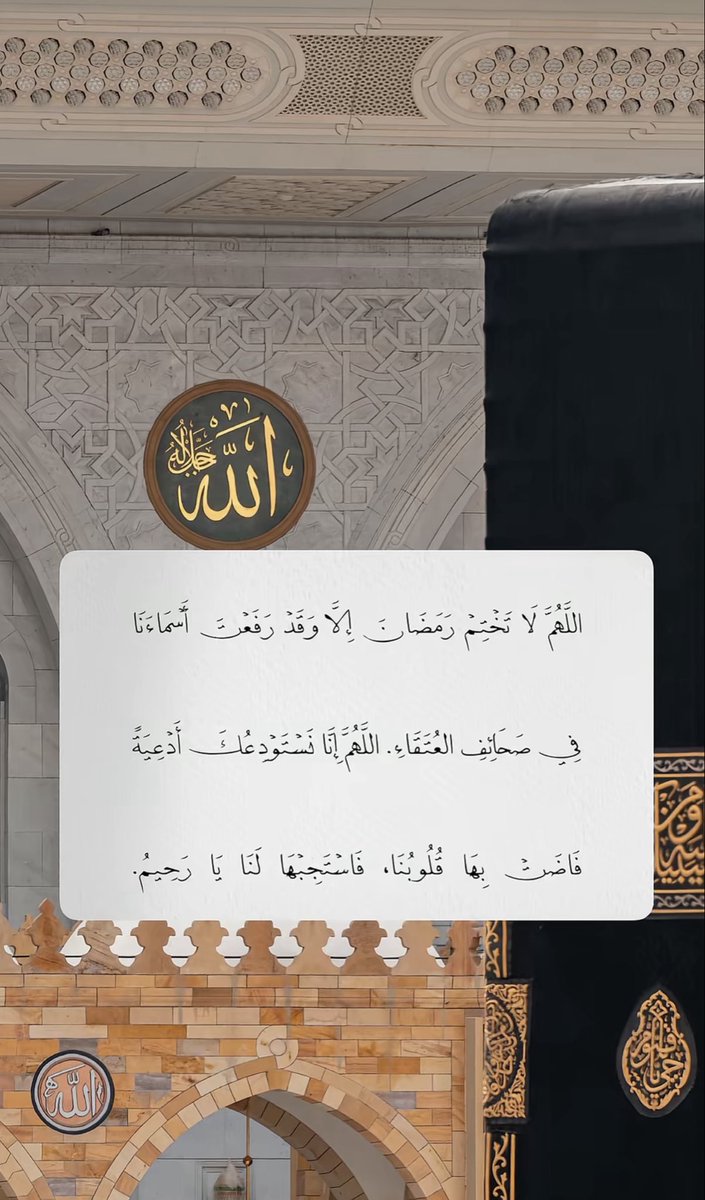 الله
جل جلاله
اللَّهُمَّ لَا تَخْتِمْ رَمَضَانَ إِلَّا وَقَدْ رَفَعْتَ أَسْمَاءَنَا
فِي صَحَائِفِ العُتَقَاءِ. اللَّهُمَّ إِنَّا نَسْتَوْدِعُكَ أَدْعِيَةً
فَاضَتْ بِهَا قُلُوبُنَا، فَاسْتَجِبْهَا لَنَا يَا رَحِيمُ.
الله
يا حي يا قيوم